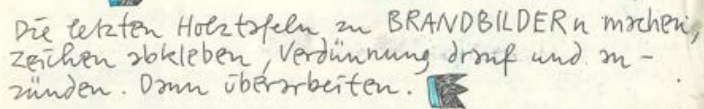 Die letzten Holztafeln zu BRANDBILDERn machen,
Zeichen abkleben, Verdünnung drauf und an-
zünden. Dann überarbeiten.